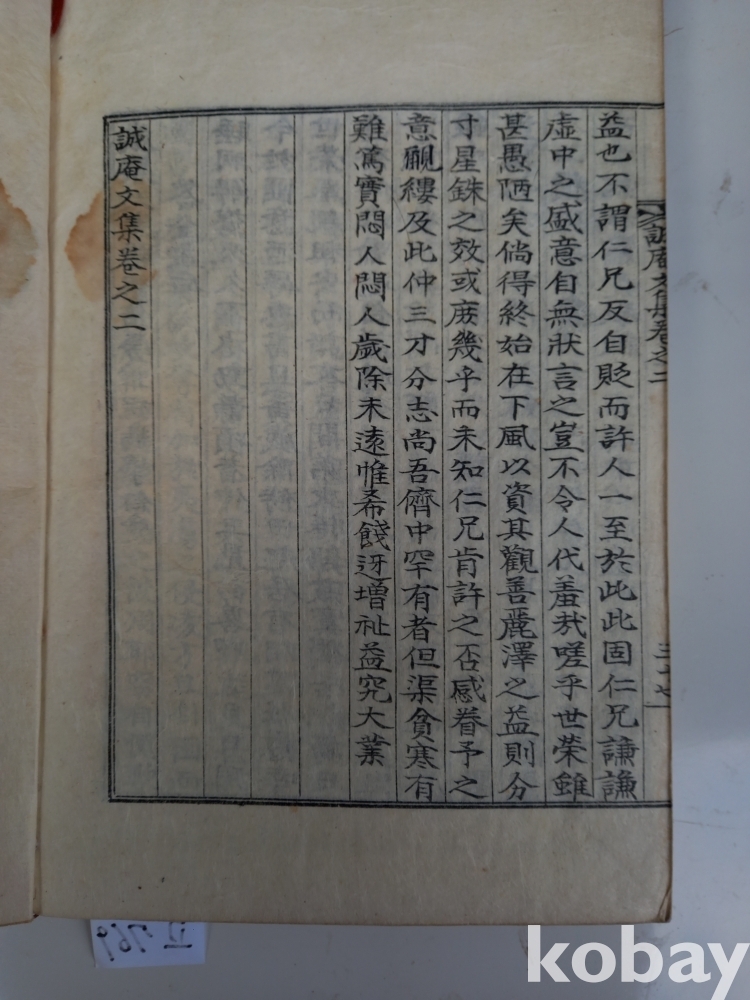 誠庵文集卷之二
三十七
益也不謂仁兄反自貶而許人一至於此此固仁兄謙謙
虛中之盛意自無狀言之豈不令人代羞㦲嗟乎世荣雖
甚愚陋矣倘得終始在下風以資其觀善麗澤之益則分
寸星銖之效或庶幾乎而未知仁兄肯許之否感眷予之
意覼縷及此仲三才分志尚吾儕中罕有者但渠貧寒有
難爲實悶人悶人歲除未遠惟希餞迓增祉益究大業
誠庵文集卷之二
kobay